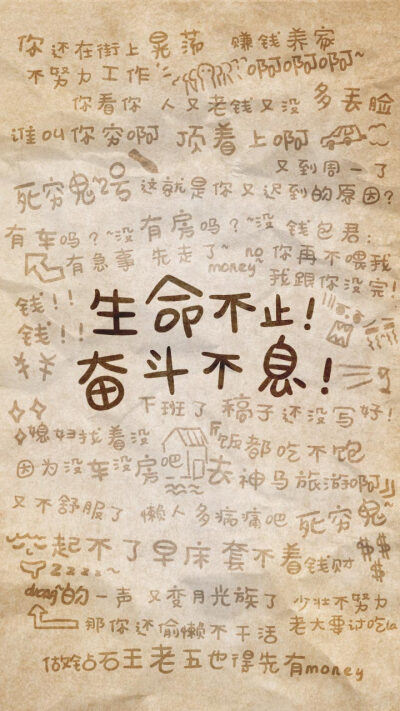 你还在街上晃荡 赚钱养家
不努力工作~ 啊啊啊啊~
你看你 人又老钱又没 多丢脸
谁叫你穷啊 顶着上啊
又到周一了
死穷鬼2号 这就是你又迟到的原因?
有车吗?~没有房吗?~没 钱包君:
有急事 先走了~ no money~ 你再不喂我
我跟你没完!
钱!!
钱!!
生命不止!
奋斗不息!
下班了 稿子还没写好!
媳妇找着没 饭都吃不饱
因为没车没房吧 去神马旅游啊
又不舒服了 懒人多病痛吧 死穷鬼~
起不了早床 套不着钱财 $$
$
zzzz~
duang的一声 又变月光族了 少壮不努力
那你还偷懒不干活 老大要讨吃la
做难钻石王老五也得先有money